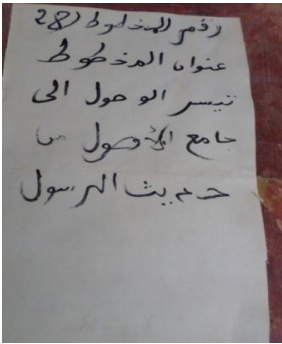 رقم المخطوط (28
عنوان المخطوط
تيسر الوصول الى
جامع الأصول من
حديث الرسول